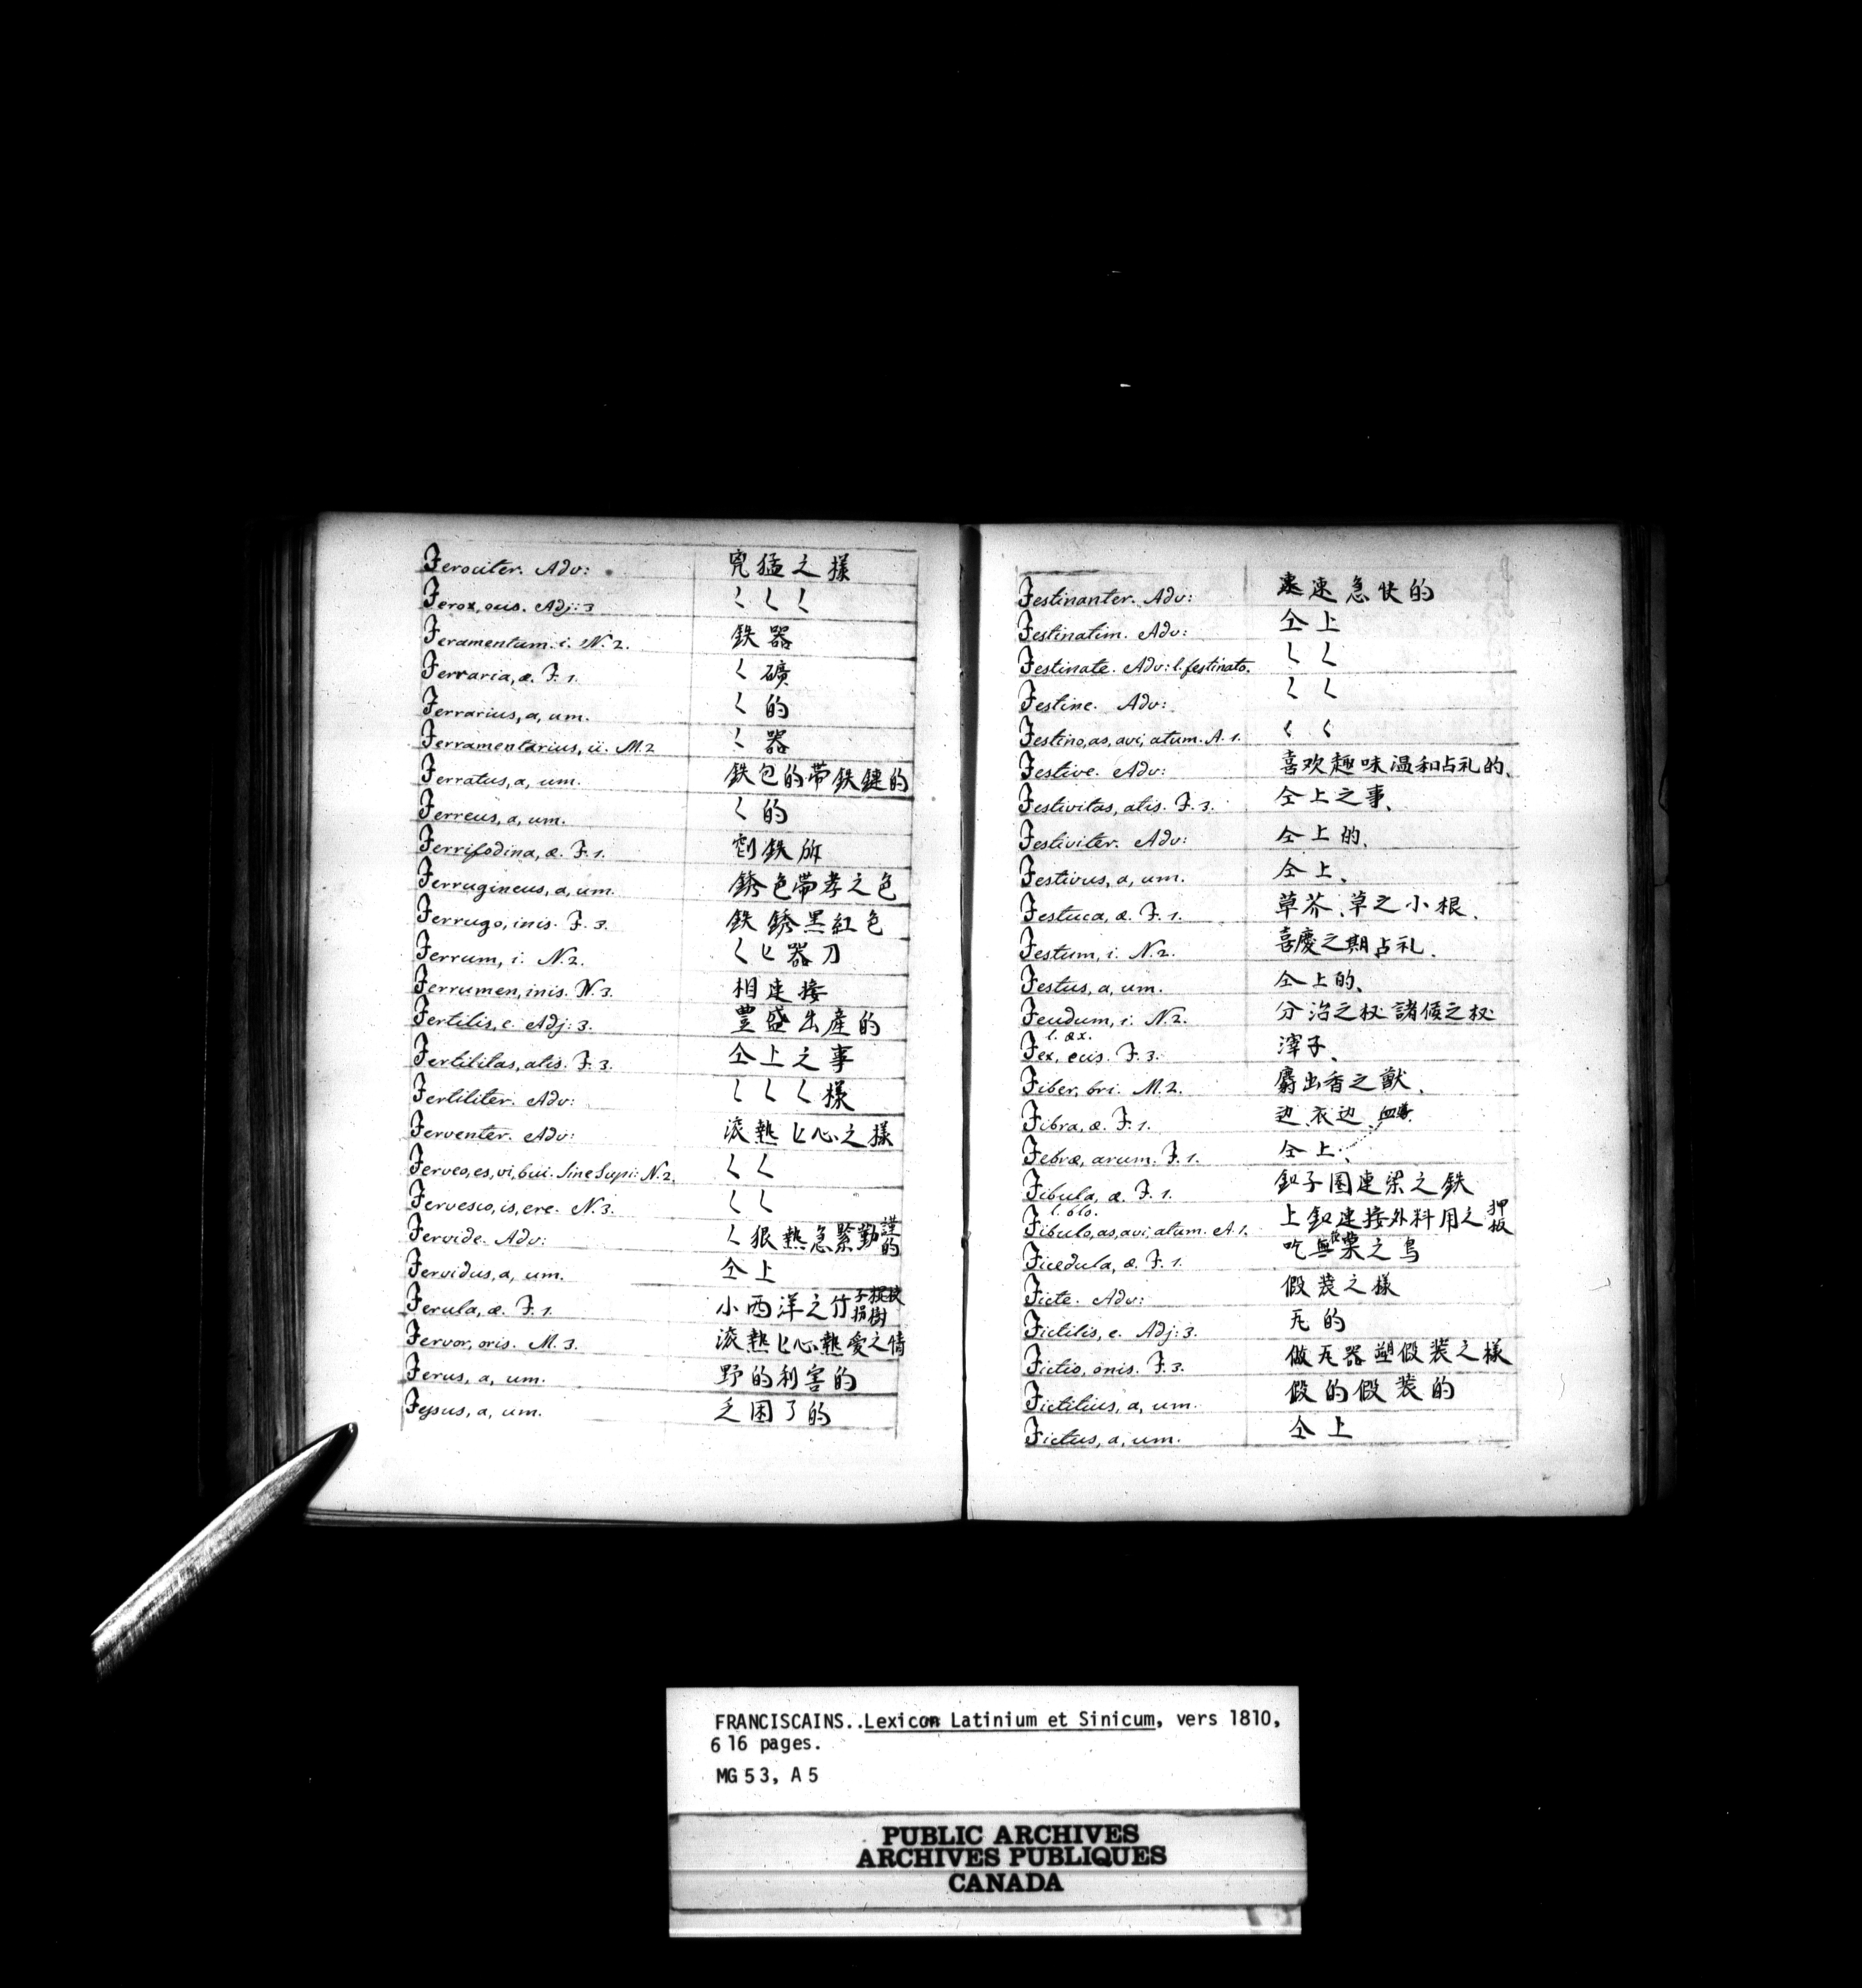 Ferociter. Adv: 兇猛之樣
Ferox, ocis. Adj: 3 く く く
Feramentum. i. N. 2. 鉄器
Ferraria, æ. F. 1. く 礦
Ferrarius, a, um. く 的
Ferramentarius, ii. M. 2 く 器
Ferratus, a, um. 鉄包的带鉄鏈的
Ferreus, a, um. く 的
Ferrifodina, æ. F. 1. 鉄
Ferrugineus, a, um. 銹色帶孝之色
Ferrugo, inis. F. 3. 鉄銹黑紅色
Ferrum, i. N. 2. く 匕 器刀
Ferrumen, inis. N. 3. 相連接
Fertilis, e. Adj: 3. 豊盛出産的
Fertilitas, atis. F. 3. 仝上之事
Fertiliter. Adv: く く く 樣
Ferventer. Adv: 滚熱匕心之樣
Ferveo, es, vi, bui. Sine Supi: N. 2. く く
Fervesco, is, ere. N. 3. く く
Fervide. Adv: く 狠熱急緊勤謹的
Fervidus, a, um. 仝上
Ferula, æ. F. 1. 小西洋之竹子
Fervor, oris. M. 3. 滚熱匕心熱愛之情
Ferus, a, um. 野的利害的
Fessus, a, um. 乏困了的
Festinanter. Adv: 速急快的
Festinatim. Adv: 仝上
Festinate. Adv: l. festinato. く く
Festine. Adv: く く
Festino, as, avi, atum. A. 1. く く
Festive. Adv: 喜欢趣味温和占礼的、
Festivitas, atis. F. 3. 仝上之事、
Festiviter. Adv: 仝上的、
Festivus, a, um. 仝上、
Festuca, æ. F. 1. 草芥、草之小根、
Festum, i. N. 2. 喜慶之期占礼、
Festus, a, um. 仝上的、
Feudum, i. N. 2. 分治之权諸侯之权
l. æx.
Fex, ecis. F. 3. 滓子、
Fiber, bri. M. 2. 麝出香之獸、
Fibra, æ. F. 1. 边、衣边、
Febræ, arum. F. 1. 仝上、
Fibula, æ. F. 1. 釦子圈連梁之鉄
l. blo.
Fibulo, as, avi, atum. A. 1. 上釦連接外料用之押板
Ficedula, æ. F. 1. 吃無菓之鸟
Ficte. Adv: 假裝之樣
Fictilis, e. Adj: 3. 瓦的
Fictio, onis. F. 3. 做瓦器塑假裝之樣
Fictilius, a, um. 假的假裝的
Fictus, a, um. 仝上
FRANCISCAINS..Lexicon Latinium et Sinicum, vers 1810,
616 pages.
MG 53, A 5
PUBLIC ARCHIVES
ARCHIVES PUBLIQUES
CANADA